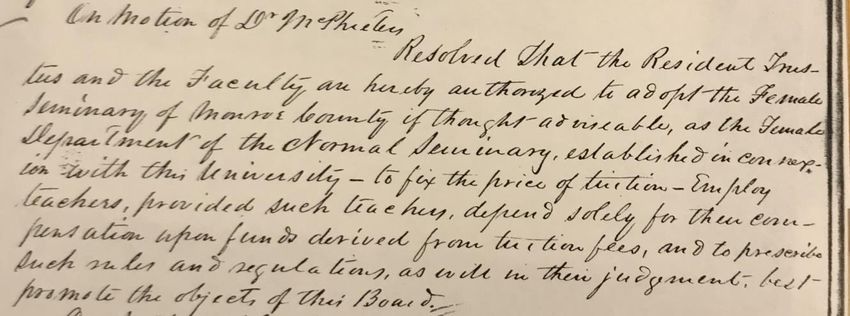 On Motion of Dr McPheeters
Resolved That the Resident Trus-
tees and the Faculty are hereby authorized to adopt the Female
Seminary of Monroe County if thought adviseable, as the Female
Department of the Normal Seminary, established in connex-
ion with this University – to fix the price of tuition – Employ
teachers, provided such teachers, depend solely for their com-
pensation upon funds derived from tuition fees, and to prescribe
such rules and regulations, as will in their judgement, best
promote the objects of this Board.